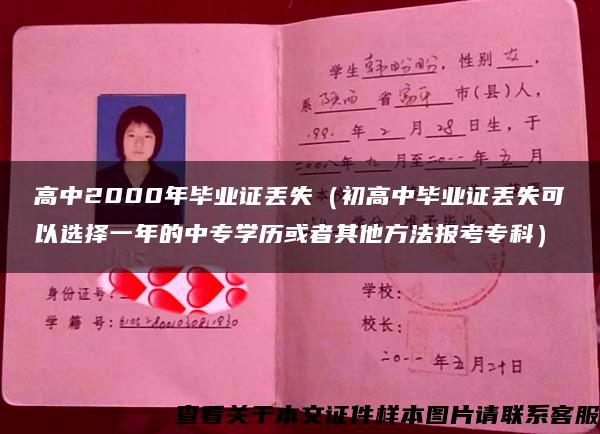 学生韩盼盼，性别女，
系陕西省富平市(县)人，
1991年2月28日生，于
2008年九月至二〇一一年五月
高中2000年毕业证丢失（初高中毕业证丢失可
以选择一年的中专学历或者其他方法报考专科）
准予毕业
身份证号：
学校：
学籍号：
校长：
二〇一一年五月二十日
查看关于本文证件样本图片请联系客服